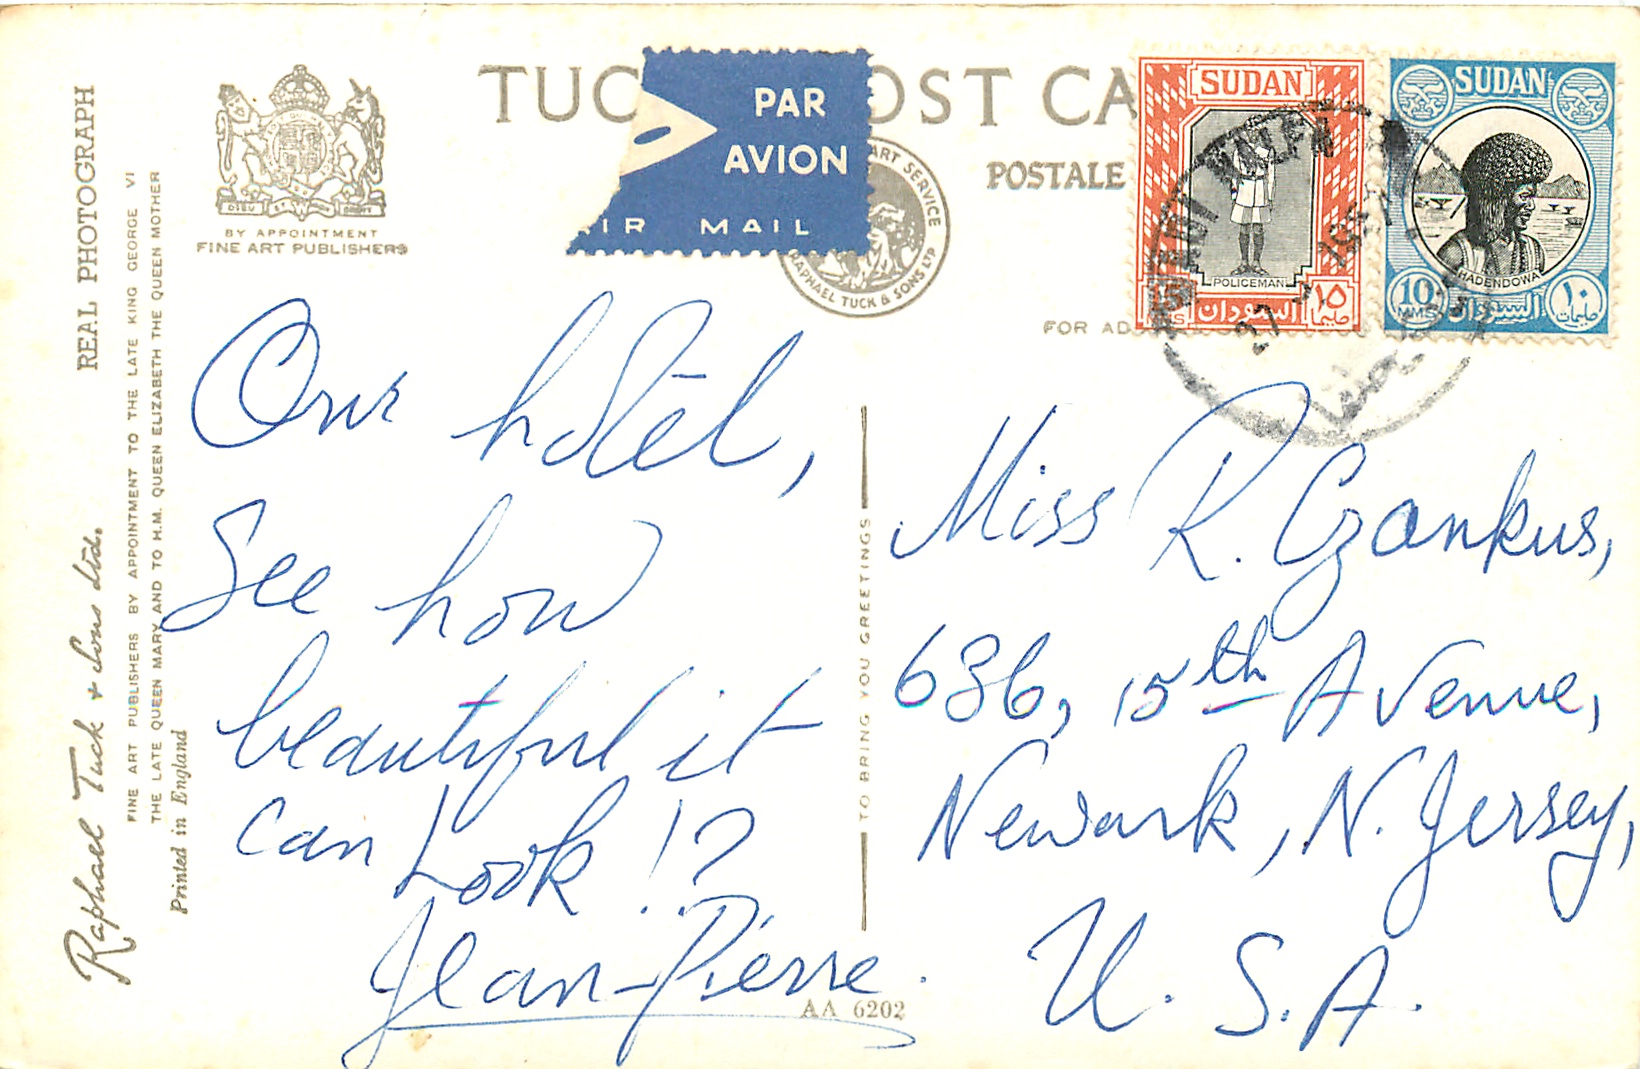 REAL PHOTOGRAPH
Raphael Tuck & Sons Ltd.
FINE ART PUBLISHERS BY APPOINTMENT TO THE LATE KING GEORGE VI
THE LATE QUEEN MARY AND TO H.M. QUEEN ELIZABETH THE QUEEN MOTHER
Printed in England
BY APPOINTMENT
FINE ART PUBLISHERS
TUC OST CA
POSTALE
PAR
AVION
IR MAIL
ART SERVICE
RAPHAEL TUCK & SONS LTD
FOR AD
SUDAN
POLICEMAN
السودان
١٥
مليما
SUDAN
HADENDOWA
10
MMS
السودان
١٠
مليمات
27
Our hôtel,
See how
beautiful it
can Look!?
Jean-Pierre.
AA 6202
TO BRING YOU GREETINGS
Miss R. Czankus,
686, 15th Avenue,
Newark, N. Jersey,
U. S. A.